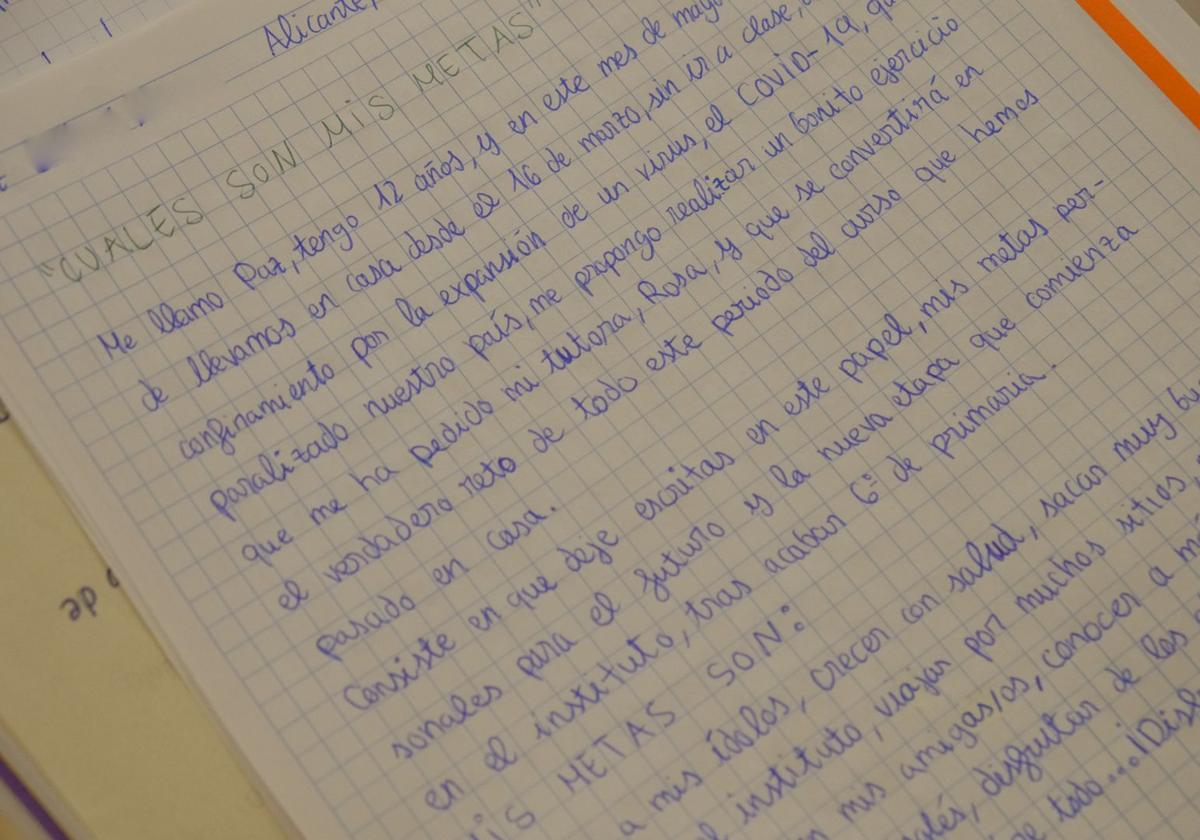 Alicante,
"CUALES SON MIS METAS"
Me llamo Paz, tengo 12 años, y en este mes de mayo
de llevamos en casa desde el 16 de marzo, sin ir a clase,
confinamiento por la expansión de un virus, el COVID-19,
paralizado nuestro país, me propongo realizar un bonito ejercicio
que me ha pedido mi tutora, Rosa, y que se convertirá en
el verdadero reto de todo este periodo del curso que hemos
pasado en casa.
Consiste en que deje escritas en este papel, mis metas per-
sonales para el futuro y la nueva etapa que comienza
en el instituto, tras acabar 6º de primaria.
MIS METAS SON:
a mis ídolos, crecer con salud, sacar muy
el instituto, viajar por muchos sitios,
mis amigas/os, conocer a
disfrutar de las
de todo...
de